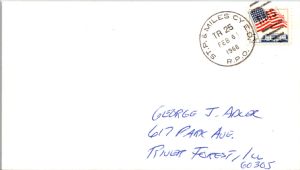 ST. P. & MILES CY. E.D.
TR 25
FEB 6
1968
R.P.O.
GEORGE J. ADLER
617 PARK AVE.
RIVER FOREST, ILL
60305